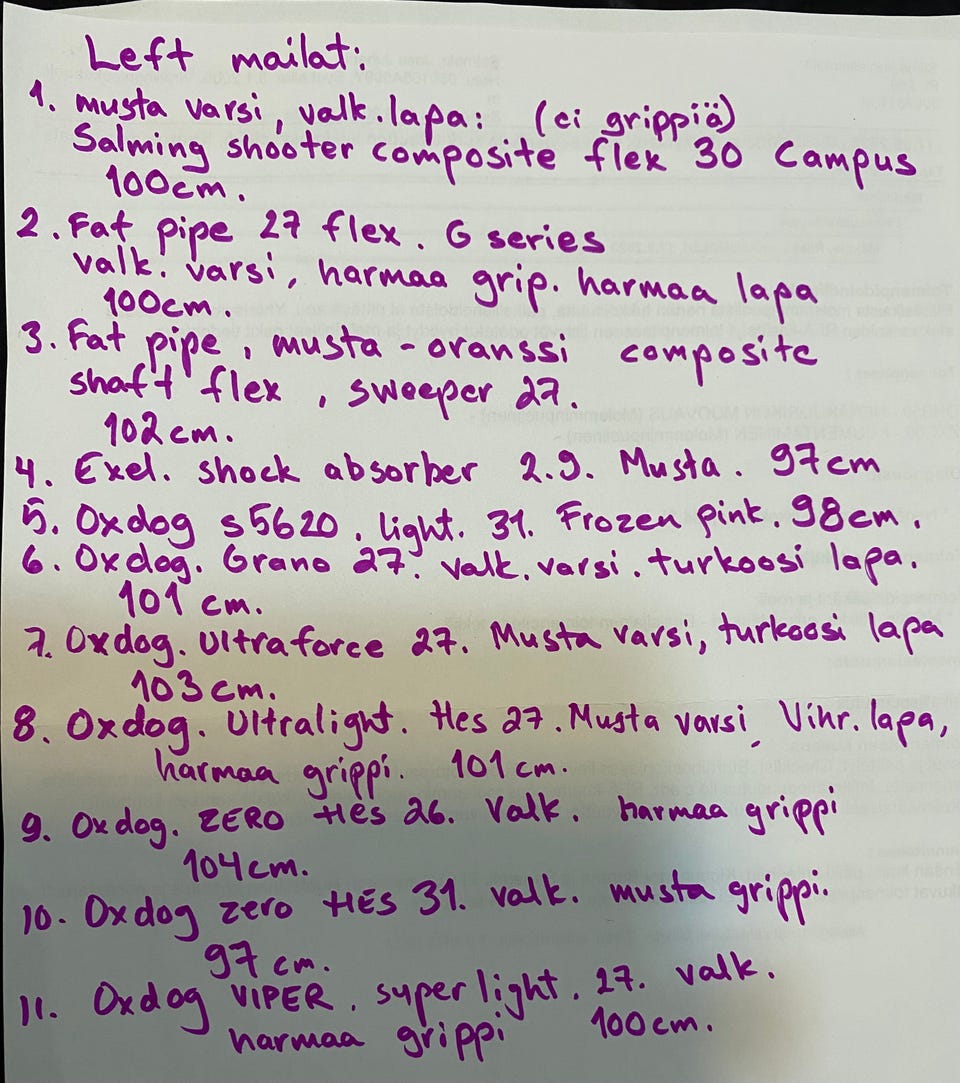 Left mailat:
1. musta varsi, valk. lapa: (ei grippiä)
Salming shooter composite flex 30 Campus
100cm.
2. Fat pipe 27 flex. G series
valk. varsi, harmaa grip. harmaa lapa
100cm.
3. Fat pipe, musta-oranssi composite
shaft flex, sweeper 27.
102cm.
4. Exel. shock absorber 2.9. Musta. 97cm
5. Oxdog s5620. light. 31. Frozen pink. 98cm.
6. Oxdog. Grano 27. valk. varsi. turkoosi lapa.
101 cm.
7. Oxdog. Ultraforce 27. Musta varsi, turkoosi lapa
103cm.
8. Oxdog. Ultralight. Hes 27. Musta varsi, Vihr. lapa,
harmaa grippi. 101 cm.
9. Oxdog. ZERO Hes 26. Valk. harmaa grippi
104cm.
10. Oxdog zero HES 31. valk. musta grippi.
97 cm.
11. Oxdog VIPER. superlight. 27. valk.
harmaa grippi 100cm.